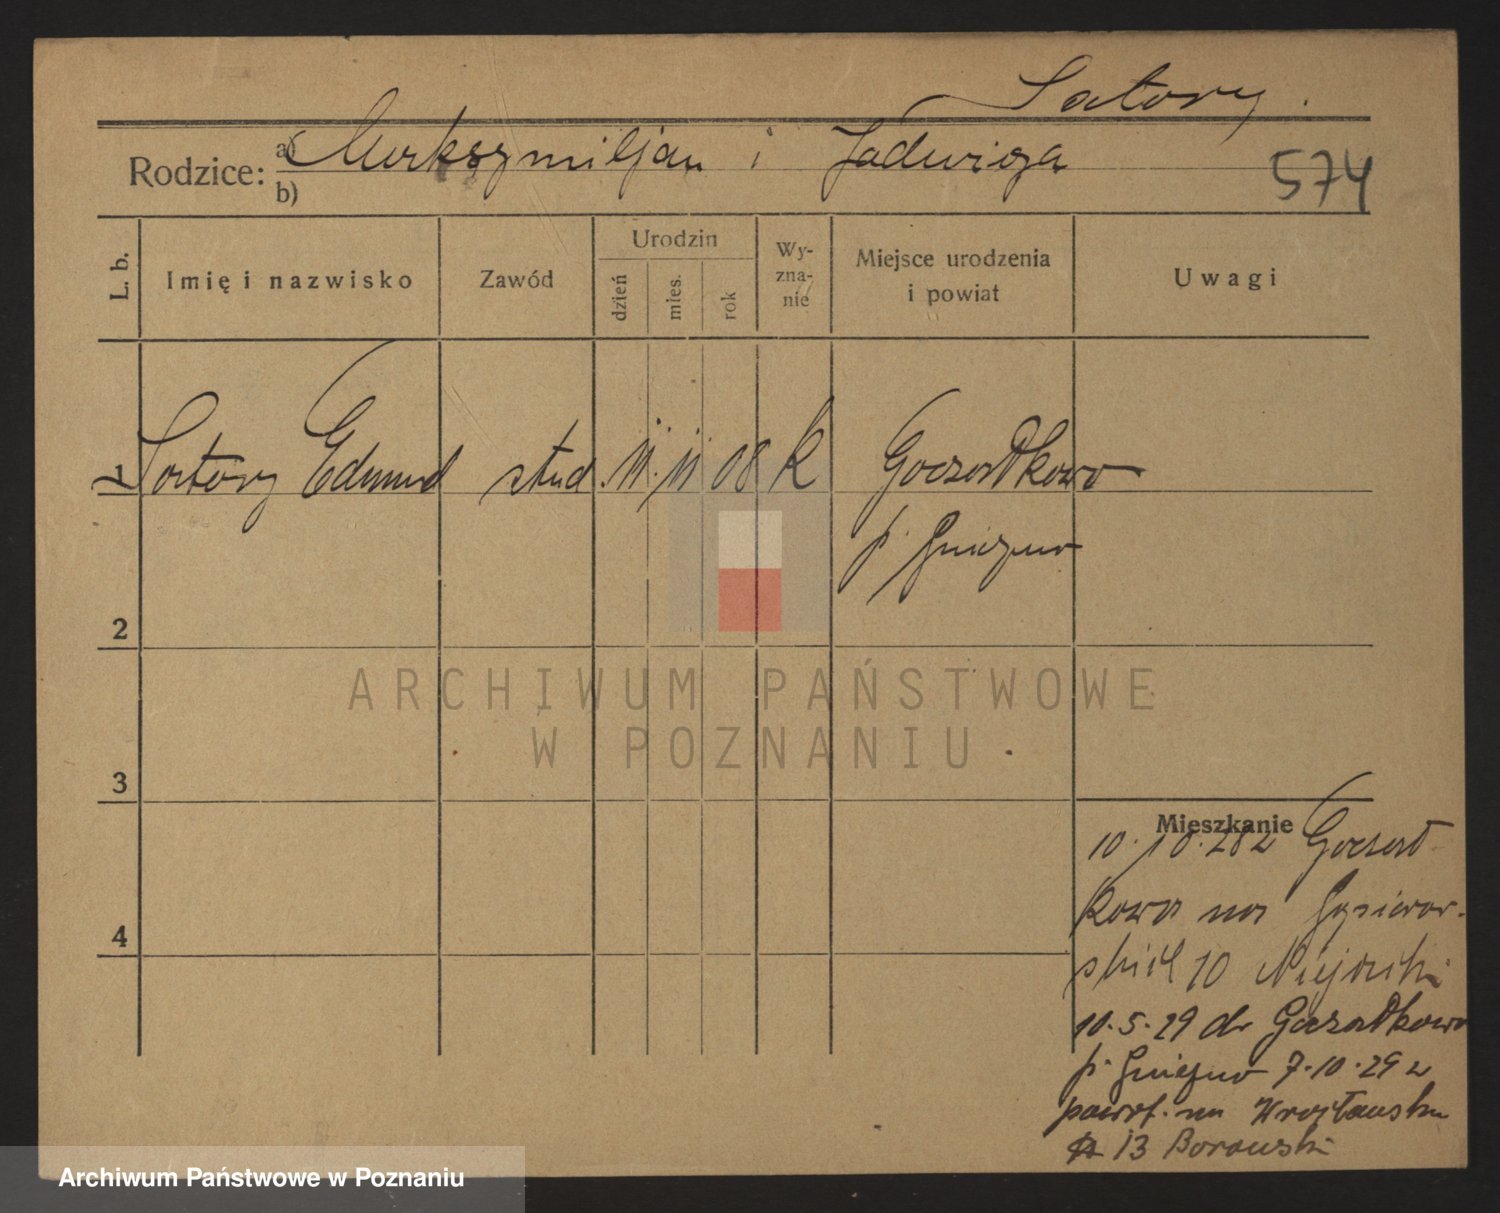 Satory.
Rodzice: a) Maksymiljan i Jadwiga
b)
574
L. b.
Imię i nazwisko
Zawód
Urodzin
dzień
mies.
rok
Wy-
zna-
nie
Miejsce urodzenia
i powiat
Uwagi
1 Satory Edmund stud. 11. 11 08 K Goczałkowo
p. Gniezno
2
3
4
ARCHIWUM PAŃSTWOWE
W POZNANIU
Mieszkanie
10.10.28 z Goczał-
kowa na
10
10.5.29 do Goczałkowo
p. Gniezno 7.10.29 z
powrot. na Wrocławska
13 Borowski
Archiwum Państwowe w Poznaniu